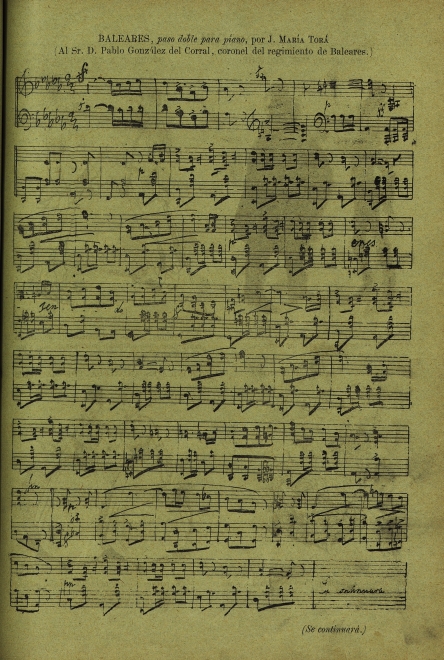 BALEARES, paso doble para piano, por J. MARÍA TORÁ
(Al Sr. D. Pablo González del Corral, coronel del regimiento de Baleares.)
cres
cen
do
(Se continuará.)